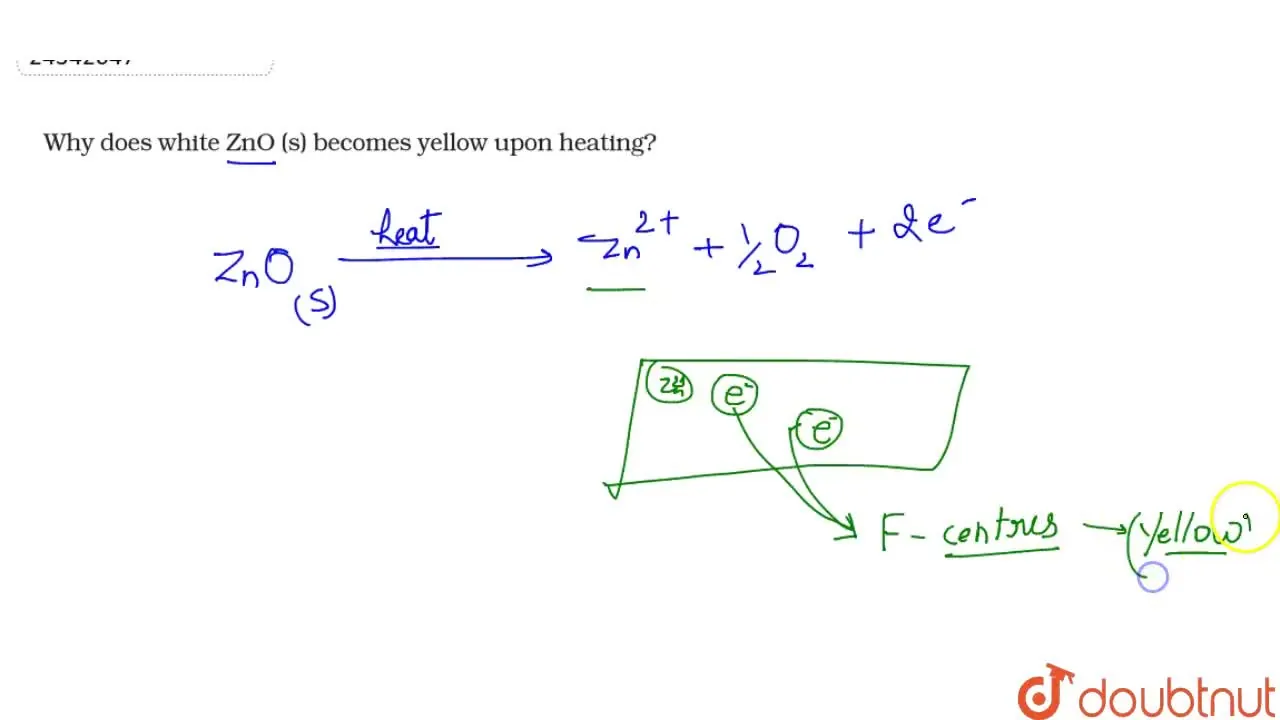 Why does white ZnO (s) becomes yellow upon heating?
ZnO (s) heat → Zn²⁺ + 1/2 O₂ + 2e⁻
e⁻
e⁻
F - centres → (Yellow
doubtnut